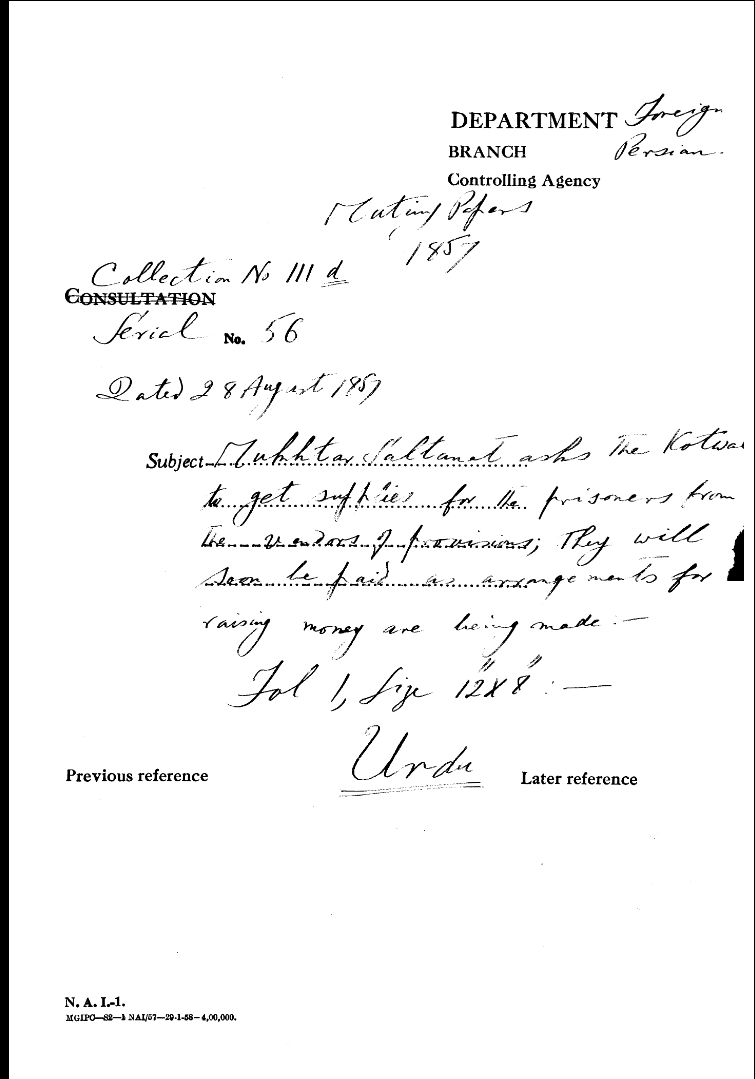 DEPARTMENT Foreign
BRANCH Persian.
Controlling Agency
Mutiny Papers
1857
Collection No 111 d
CONSULTATION
Serial No. 56
Dated 28 August 1857
Subject Mukhtar Saltanat asks the Kotwal
to get supplies for the prisoners from
the vendors of provisions; They will
soon be paid as arrangements for
raising money are being made :—
Fol 1, Size 12"X8" :—
Urdu
Previous reference Later reference
N. A. I.-1.
MGIPC—S2—1 NAI/57—29-1-58—4,00,000.